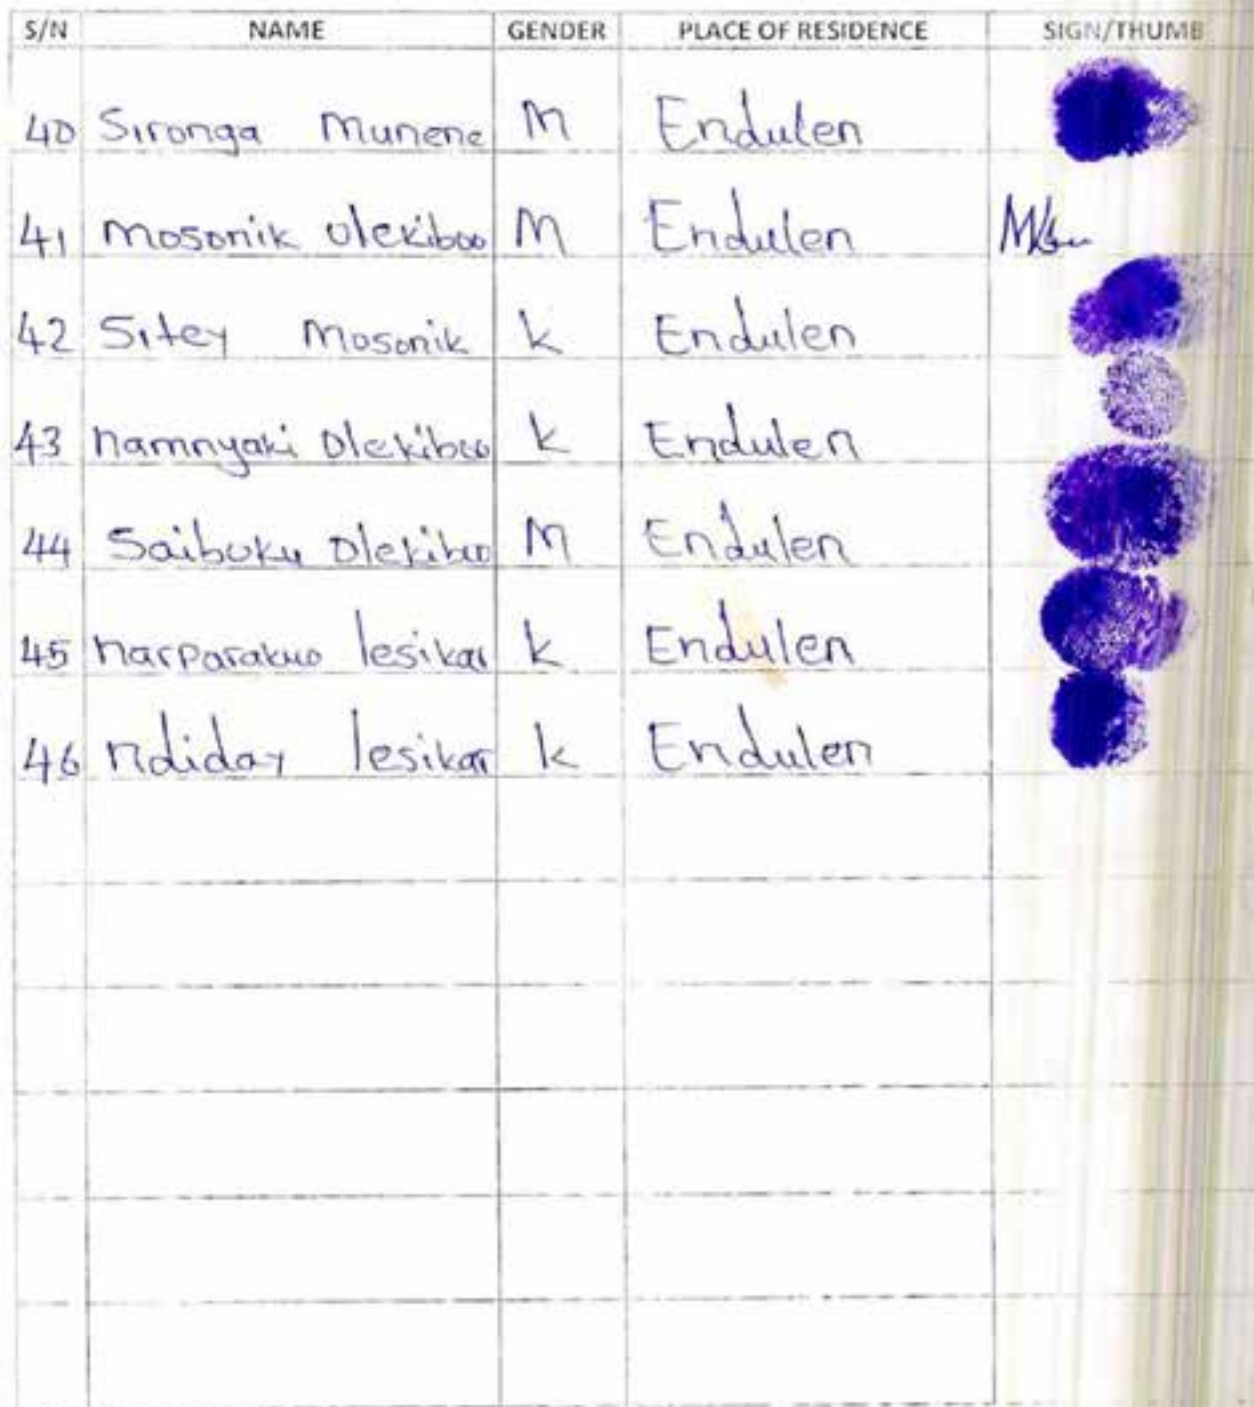 S/N NAME GENDER PLACE OF RESIDENCE SIGN/THUMB
40 Sironga Munene M Endulen
41 Mosonik Olekiboo M Endulen
42 Sitey Mosonik k Endulen
43 Namnyaki Olekiboo k Endulen
44 Saibuku Olekiboo M Endulen
45 Narparakuo lesikar k Endulen
46 Ndiday lesikar k Endulen